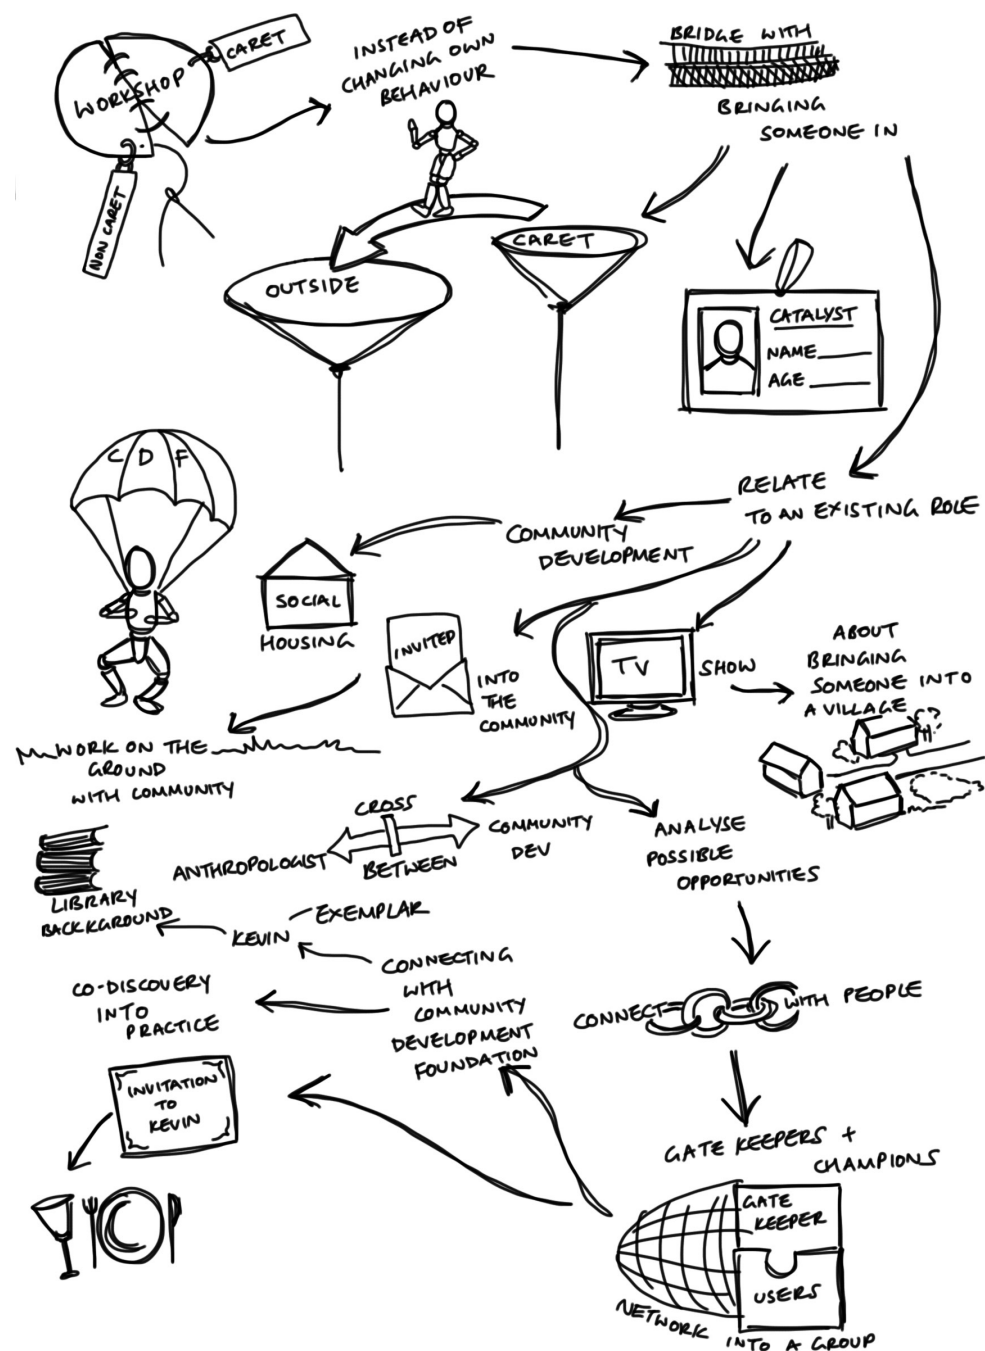 CARET
WORKSHOP
NON CARET
INSTEAD OF
CHANGING OWN
BEHAVIOUR
BRIDGE WITH
BRINGING
SOMEONE IN
CARET
OUTSIDE
CATALYST
NAME
AGE
C D F
RELATE
TO AN EXISTING ROLE
COMMUNITY
DEVELOPMENT
SOCIAL
HOUSING
INVITED
INTO
THE
COMMUNITY
TV
SHOW
ABOUT
BRINGING
SOMEONE INTO
A VILLAGE
WORK ON THE
GROUND
WITH COMMUNITY
CROSS
BETWEEN
ANTHROPOLOGIST
COMMUNITY
DEV
ANALYSE
POSSIBLE
OPPORTUNITIES
LIBRARY
BACKKGROUND
KEVIN
EXEMPLAR
CONNECTING
WITH
COMMUNITY
DEVELOPMENT
FOUNDATION
CO-DISCOVERY
INTO
PRACTICE
CONNECT
WITH PEOPLE
INVITATION
TO
KEVIN
GATE KEEPERS +
CHAMPIONS
GATE
KEEPER
USERS
NETWORK INTO A GROUP